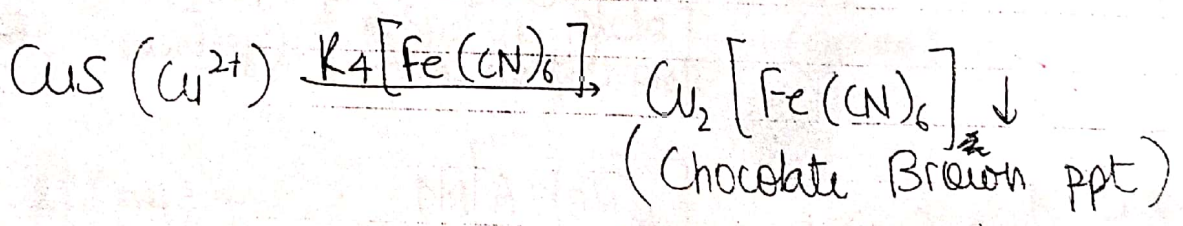 CuS (Cu²⁺) K₄[Fe(CN)₆] → Cu₂[Fe(CN)₆] ↓
(Chocolate Brown ppt)